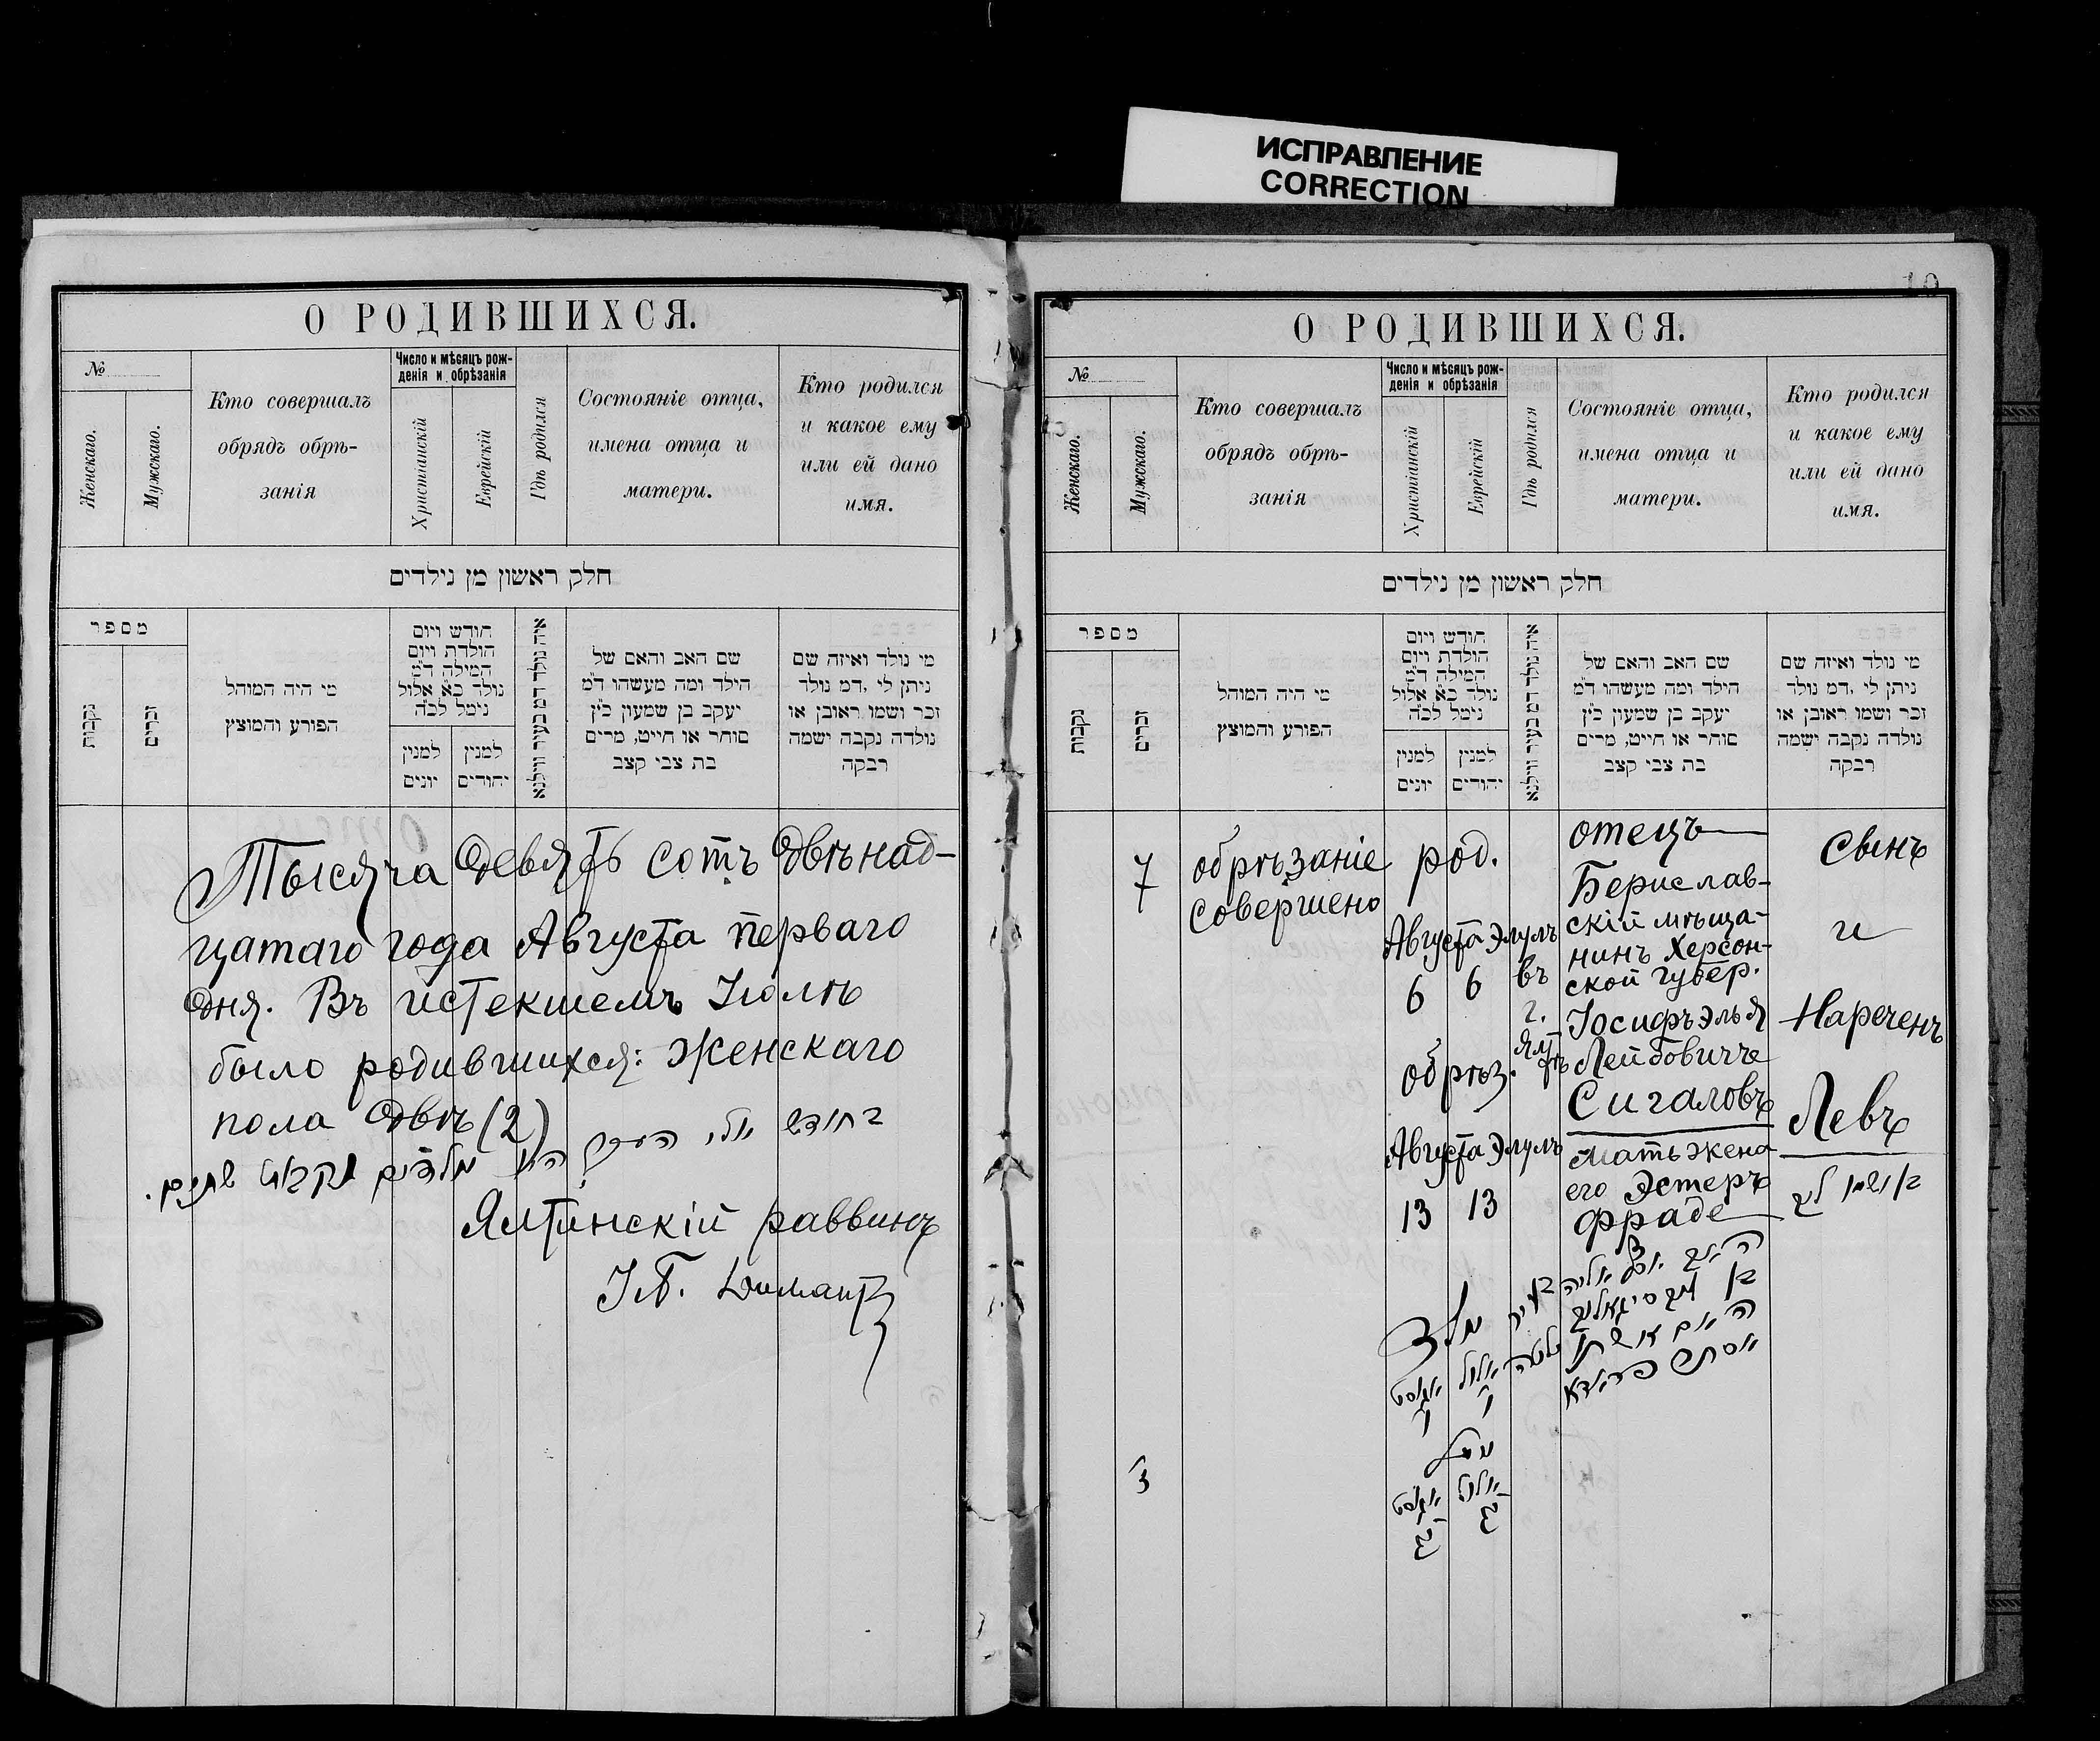 ИСПРАВЛЕНИЕ
CORRECTION
О РОДИВШИХСЯ.
№
Женскаго.
Мужскаго.
Кто совершалъ
обрядъ обрѣ-
занія
Число и мѣсяцъ рож-
денія и обрѣзанія
Христіанскій
Еврейскій
Гдѣ родился
Состояніе отца,
имена отца и
матери.
Кто родился
и какое ему
или ей дано
имя.
חלק ראשון מן נילדים
מספר
נקבות
זכרים
מי היה המוהל
הפורע והמוצץ
חודש ויום
הולדת ויום
המילה ד״מ
נולד כ״א אלול
נימל לכ״ה
למנין
יונים
למנין
יהודים
איה נולד דמ בעיר ווילנא
שם האב והאם של
הילד ומה מעשהו ד״מ
יעקב בן שמעון כ״ץ
סוחר או חייט, מרים
בת צבי קצב
מי נולד ואיזה שם
ניתן לי ,דמ נולד
זכר ושמו ראובן או
נולדה נקבה ישמה
רבקה
Тысяча девять сотъ двѣнад-
цатаго года Августа перваго
дня. Въ истекшемъ Іюлѣ
было родившихся: женскаго
пола двѣ (2)
בחודש יולי העבר היו
נולדים נקבות שתים.
Ялтинскій раввинъ
10
О РОДИВШИХСЯ.
№
Женскаго.
Мужскаго.
Кто совершалъ
обрядъ обрѣ-
занія
Число и мѣсяцъ рож-
денія и обрѣзанія
Христіанскій
Еврейскій
Гдѣ родился
Состояніе отца,
имена отца и
матери.
Кто родился
и какое ему
или ей дано
имя.
חלק ראשון מן נילדים
מספר
נקבות
זכרים
מי היה המוהל
הפורע והמוצץ
חודש ויום
הולדת ויום
המילה ד״מ
נולד כ״א אלול
נימל לכ״ה
למנין
יונים
למנין
יהודים
איה נולד דמ בעיר ווילנא
שם האב והאם של
הילד ומה מעשהו ד״מ
יעקב בן שמעון כ״ץ
סוחר או חייט, מרים
בת צבי קצב
מי נולד ואיזה שם
ניתן לי ,דמ נולד
זכר ושמו ראובן או
נולדה נקבה ישמה
רבקה
7
обрѣзаніе
совершено
род.
Августа
6
Элулъ
6
обрѣз.
Августа
13
Элулъ
13
въ
г.
Ял
тѣ
отецъ
Берислав-
скій мѣща-
нинъ Херсон-
ской губер.
Іосифъ Элья
Лейбовичъ
Сигаловъ
мать жена
его Эстеръ
Фраде
Сынъ
и
Нареченъ
Левъ
בן ושמו לב
נולד
בעיר
ילטה
אוגוסט
ו׳
אלול
ו׳
נימל
אוגוסט
י״ג
אלול
י״ג
האב יוסף אליה
בן לייב סיגאלוב
האם אשתו
אסתר פראדא
ז׳